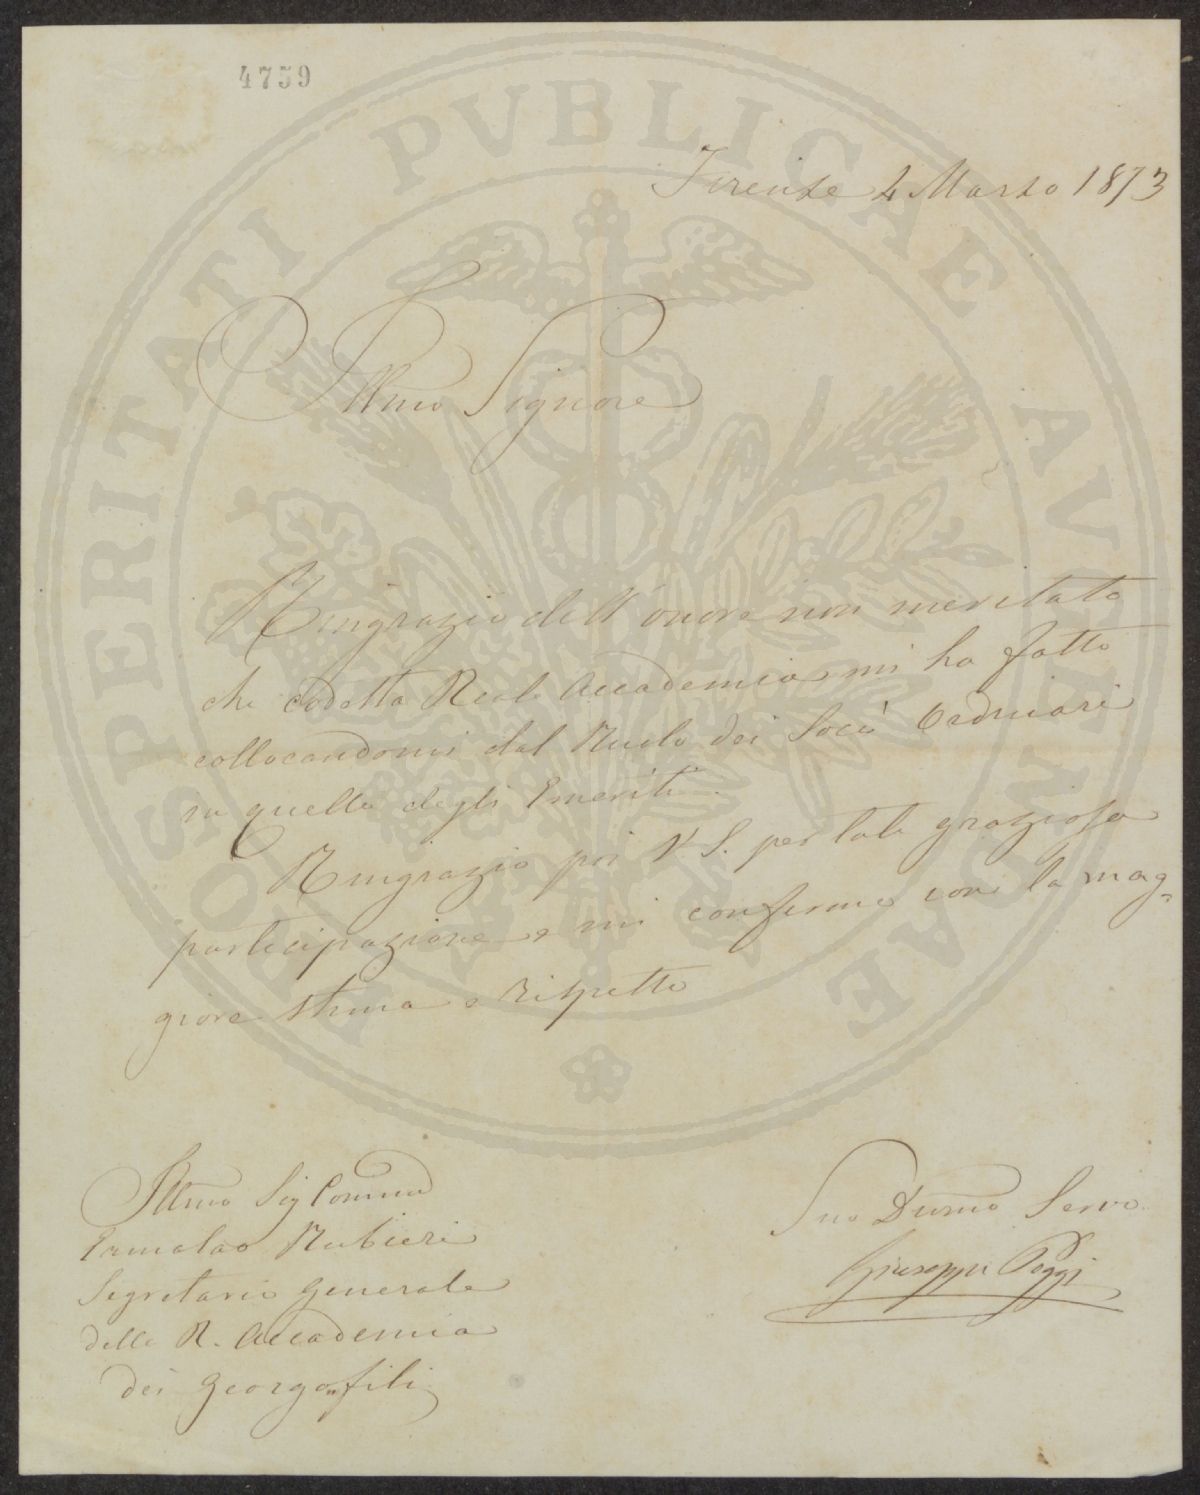 4759
Firenze 4 Marzo 1873
Illmo Signore
Ringrazio dell'onore non meritato
che codesta Reale Accademia mi ha fatto
collocandomi dal Ruolo dei Socii Ordinari
in quello degli Emeriti.
Ringrazio poi V S. per tale graziosa
partecipazione e mi confermo con la mag=
giore stima e rispetto
Suo Dvmo Servo
Giuseppe Poggi
Illmo Sig Commd
Ermolao Rubieri
Segretario Generale
della R. Accademia
dei Georgofili
PROSPERITATI PVBLICAE AVGENDAE